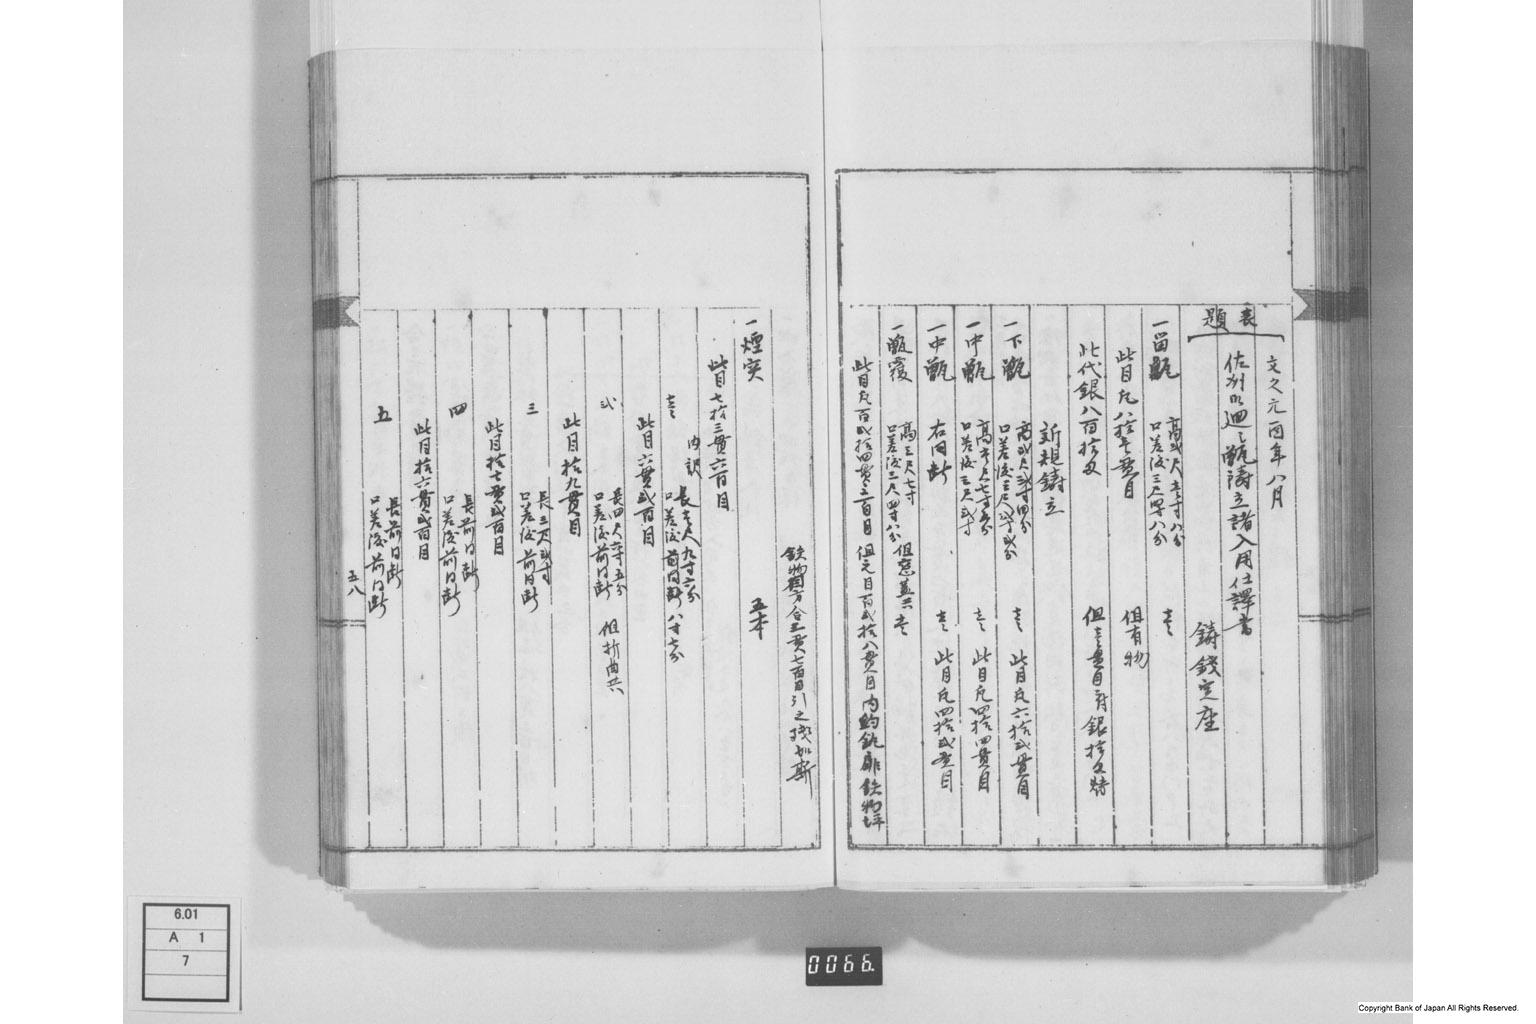 表題
文久元酉年八月
佐州御廻シ甑鋳立諸入用仕譯書
鋳錢定座
一留甑
高弐尺壱寸八分
口差渡三尺四寸八分
壱ツ
此目凡八拾壱貫目
但有物
此代銀八百拾匁
但壱貫目ニ付銀拾匁替
新規鋳立
一下甑
高弐尺弐寸四分
口差渡三尺八寸弐分
壱ツ
此目凡六拾弐貫目
一中甑
高壱尺七寸五分
口差渡三尺弐寸
壱ツ
此目凡四拾四貫目
一中甑
右同断
壱ツ
此目凡四拾弐貫目
一甑覆
高三尺七寸
口差渡三尺四寸八分
但窓蓋共
壱ツ
此目凡百弐拾四貫三百目
但元目百弐拾八貫目内鈞釻扉鉄物坪
鉄物目方合三貫七百目引之残如斯
一煙突
五本
此目七拾三貫六百目
内訳
壱
長壱尺九寸六分
口差渡前同断八寸七分
此目六貫弐百目
弐
長四尺六寸五分
口差渡前同断
但折曲共
此目拾九貫目
三
長三尺弐寸
口差渡前同断
此目拾七貫弐百目
四
長前同断
口差渡前同断
此目拾六貫弐百目
五
長前同断
口差渡前同断
五八
6.01
A 1
7
0066.
Copyright Bank of Japan All Rights Reserved.